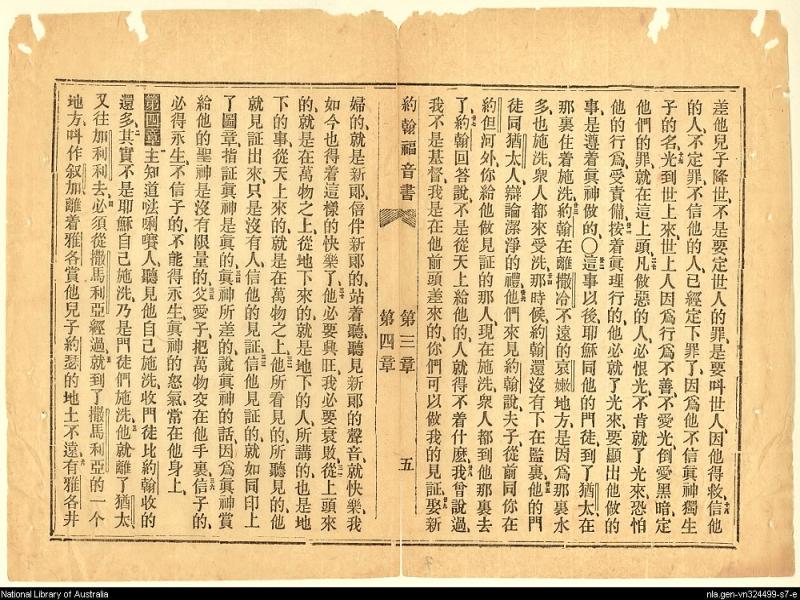 差他兒子降世、不是要定世人的罪、是要叫世人、因他得救、信他
的人、不定罪、不信他的人、已經定下罪了、因爲他不信眞神獨生
子的名、光到世上來、世上人因爲行爲不善、不愛光、倒愛黑暗、定
他們的罪、就在這上頭、凡做惡的人、必恨光、不肯就了光來、恐怕
他的行爲受責備、按着眞理行的、他必就了光來、要顯出他做的
事、是遵着眞神做的、〇這事以後、耶穌同他的門徒、到了猶太、在
那裏住着施洗、約翰在離撒冷不遠的哀嫩地方、是因爲那裏水
多、也施洗、衆人都來受洗、那時候約翰還沒有下在監裏、他的門
徒同猶太人、辯論潔淨的禮、他們來見約翰說、夫子、從前同你在
約但河外、你給他做見証的那人、現在施洗、衆人都到他那裏去
了、約翰回答說、不是從天上給他的、人就得不着什麽、我曾說過、
我不是基督、我是在他前頭差來的、你們可以做我的見証、娶新
約翰福音書
第三章
第四章
五
婦的、就是新郞、信伴新郞的、站着聽、聽見新郞的聲音、就快樂、我
如今也得着這樣的快樂了、他必要興旺、我必要衰敗、從上頭來
的、就是在萬物之上、從地下來的、就是地下的人、所講的、也是地
下的事、從天上來的、就是在萬物之上、他所看見的、所聽見的、他
就見証出來、只是沒有人信他的見証、信他見証的、就如同印上
了圖章、指証眞神是眞的、眞神所差的、說眞神的話、因爲眞神賞
給他的聖神、是沒有限量的、父愛子、把萬物交在他手裏、信子的、
必得永生、不信子的、不能得永生、眞神的怒氣、常在他身上、
第四章 主知道𠵽唎嚽人、聽見他自己施洗收門徒、比約翰收的
還多、其實不是耶穌自己施洗、乃是門徒們施洗、他就離了猶太、
又往加利利去、必須從撒馬利亞經過、就到了撒馬利亞的一个
地方、叫作叙加、離着雅各賞他兒子約瑟的地土不遠、有雅各井
National Library of Australia
nla.gen-vn324499-s7-e